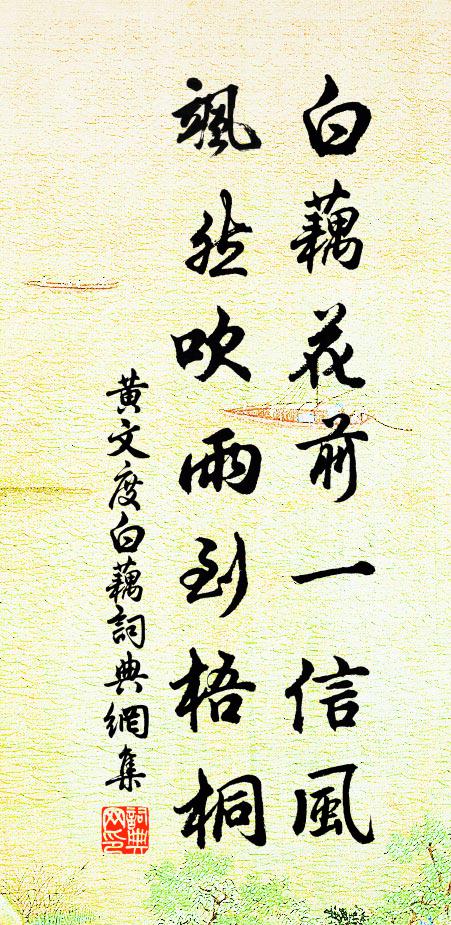 白藕花前一信風
颯然吹雨到梧桐
黃文度白藕詞典網集
詞典網印